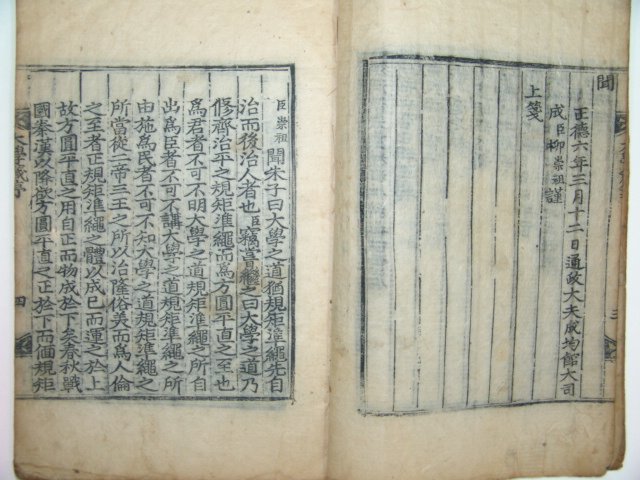 聞
正德六年三月十二日通政大夫成均館大司
成臣柳崇祖謹
上箋
三
臣崇祖聞朱子曰大學之道猶規矩準繩先自
治而後治人者也臣竊嘗繼之曰大學之道乃
修齊治平之規矩準繩而爲方圓平直之至也
爲君者不可不明大學之道規矩準繩之所自
出爲臣者不可不講大學之道規矩準繩之所
由施爲民者不可不知大學之道規矩準繩之
所當從二帝三王之所以治隆俗美而爲人倫
之至者正規矩準繩之體以成己而運之於上
故方圓平直之用自正而物成於下矣春秋戰
國秦漢以降欲方圓平直之正於下而偭規矩
大學箴序 四